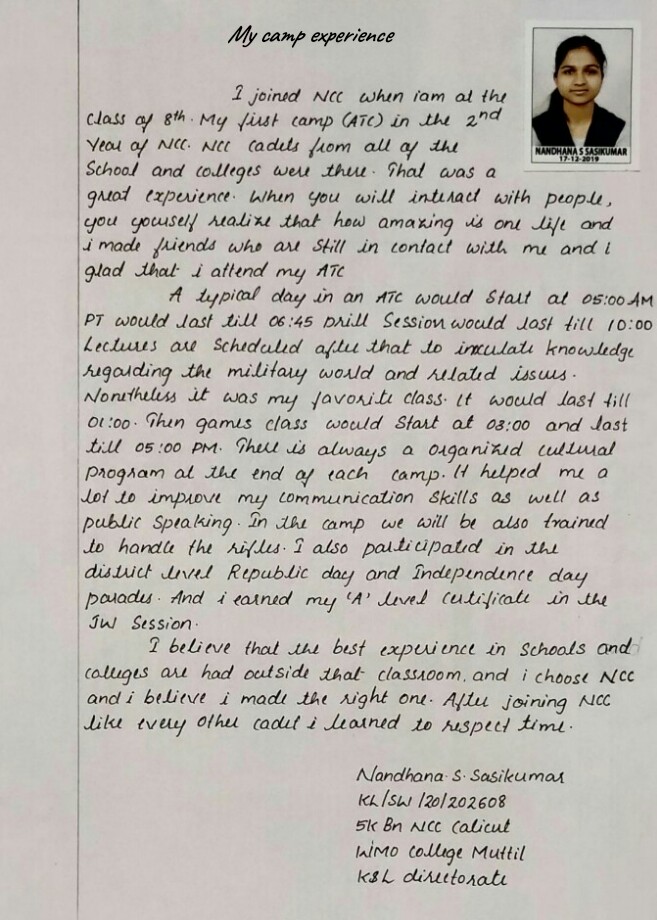 My camp experience
NANDHANA S SASIKUMAR
17-12-2019
I joined NCC when iam at the
class of 8th. My first camp (ATC) in the 2nd
Year of NCC. NCC cadets from all of the
School and colleges were there. That was a
great experience. When you will interact with people,
you youself realize that how amazing is one life and
i made friends who are still in contact with me and i
glad that i attend my ATC
A typical day in an ATC would Start at 05:00 AM
PT would last till 06:45 Drill Session would last till 10:00
Lectures are Scheduled after that to inculate knowledge
regarding the military world and related issues.
Nonetheless it was my favorite class. It would last till
01:00. Then games class would Start at 03:00 and last
till 05:00 PM. There is always a organized cultural
program at the end of each camp. It helped me a
lot to improve my communication skills as well as
public Speaking. In the camp we will be also trained
to handle the rifles. I also participated in the
district level Republic day and Independence day
parades. And i earned my 'A' level certificate in the
JW Session.
I believe that the best experience in Schools and
colleges are had outside that classroom, and i choose NCC
and i believe i made the right one. After joining NCC
like every other cadet i learned to respect time.
Nandhana. S. Sasikumar
KL/SW/20/202608
5K Bn NCC Calicut
WMO College Muttil
K&L directorate